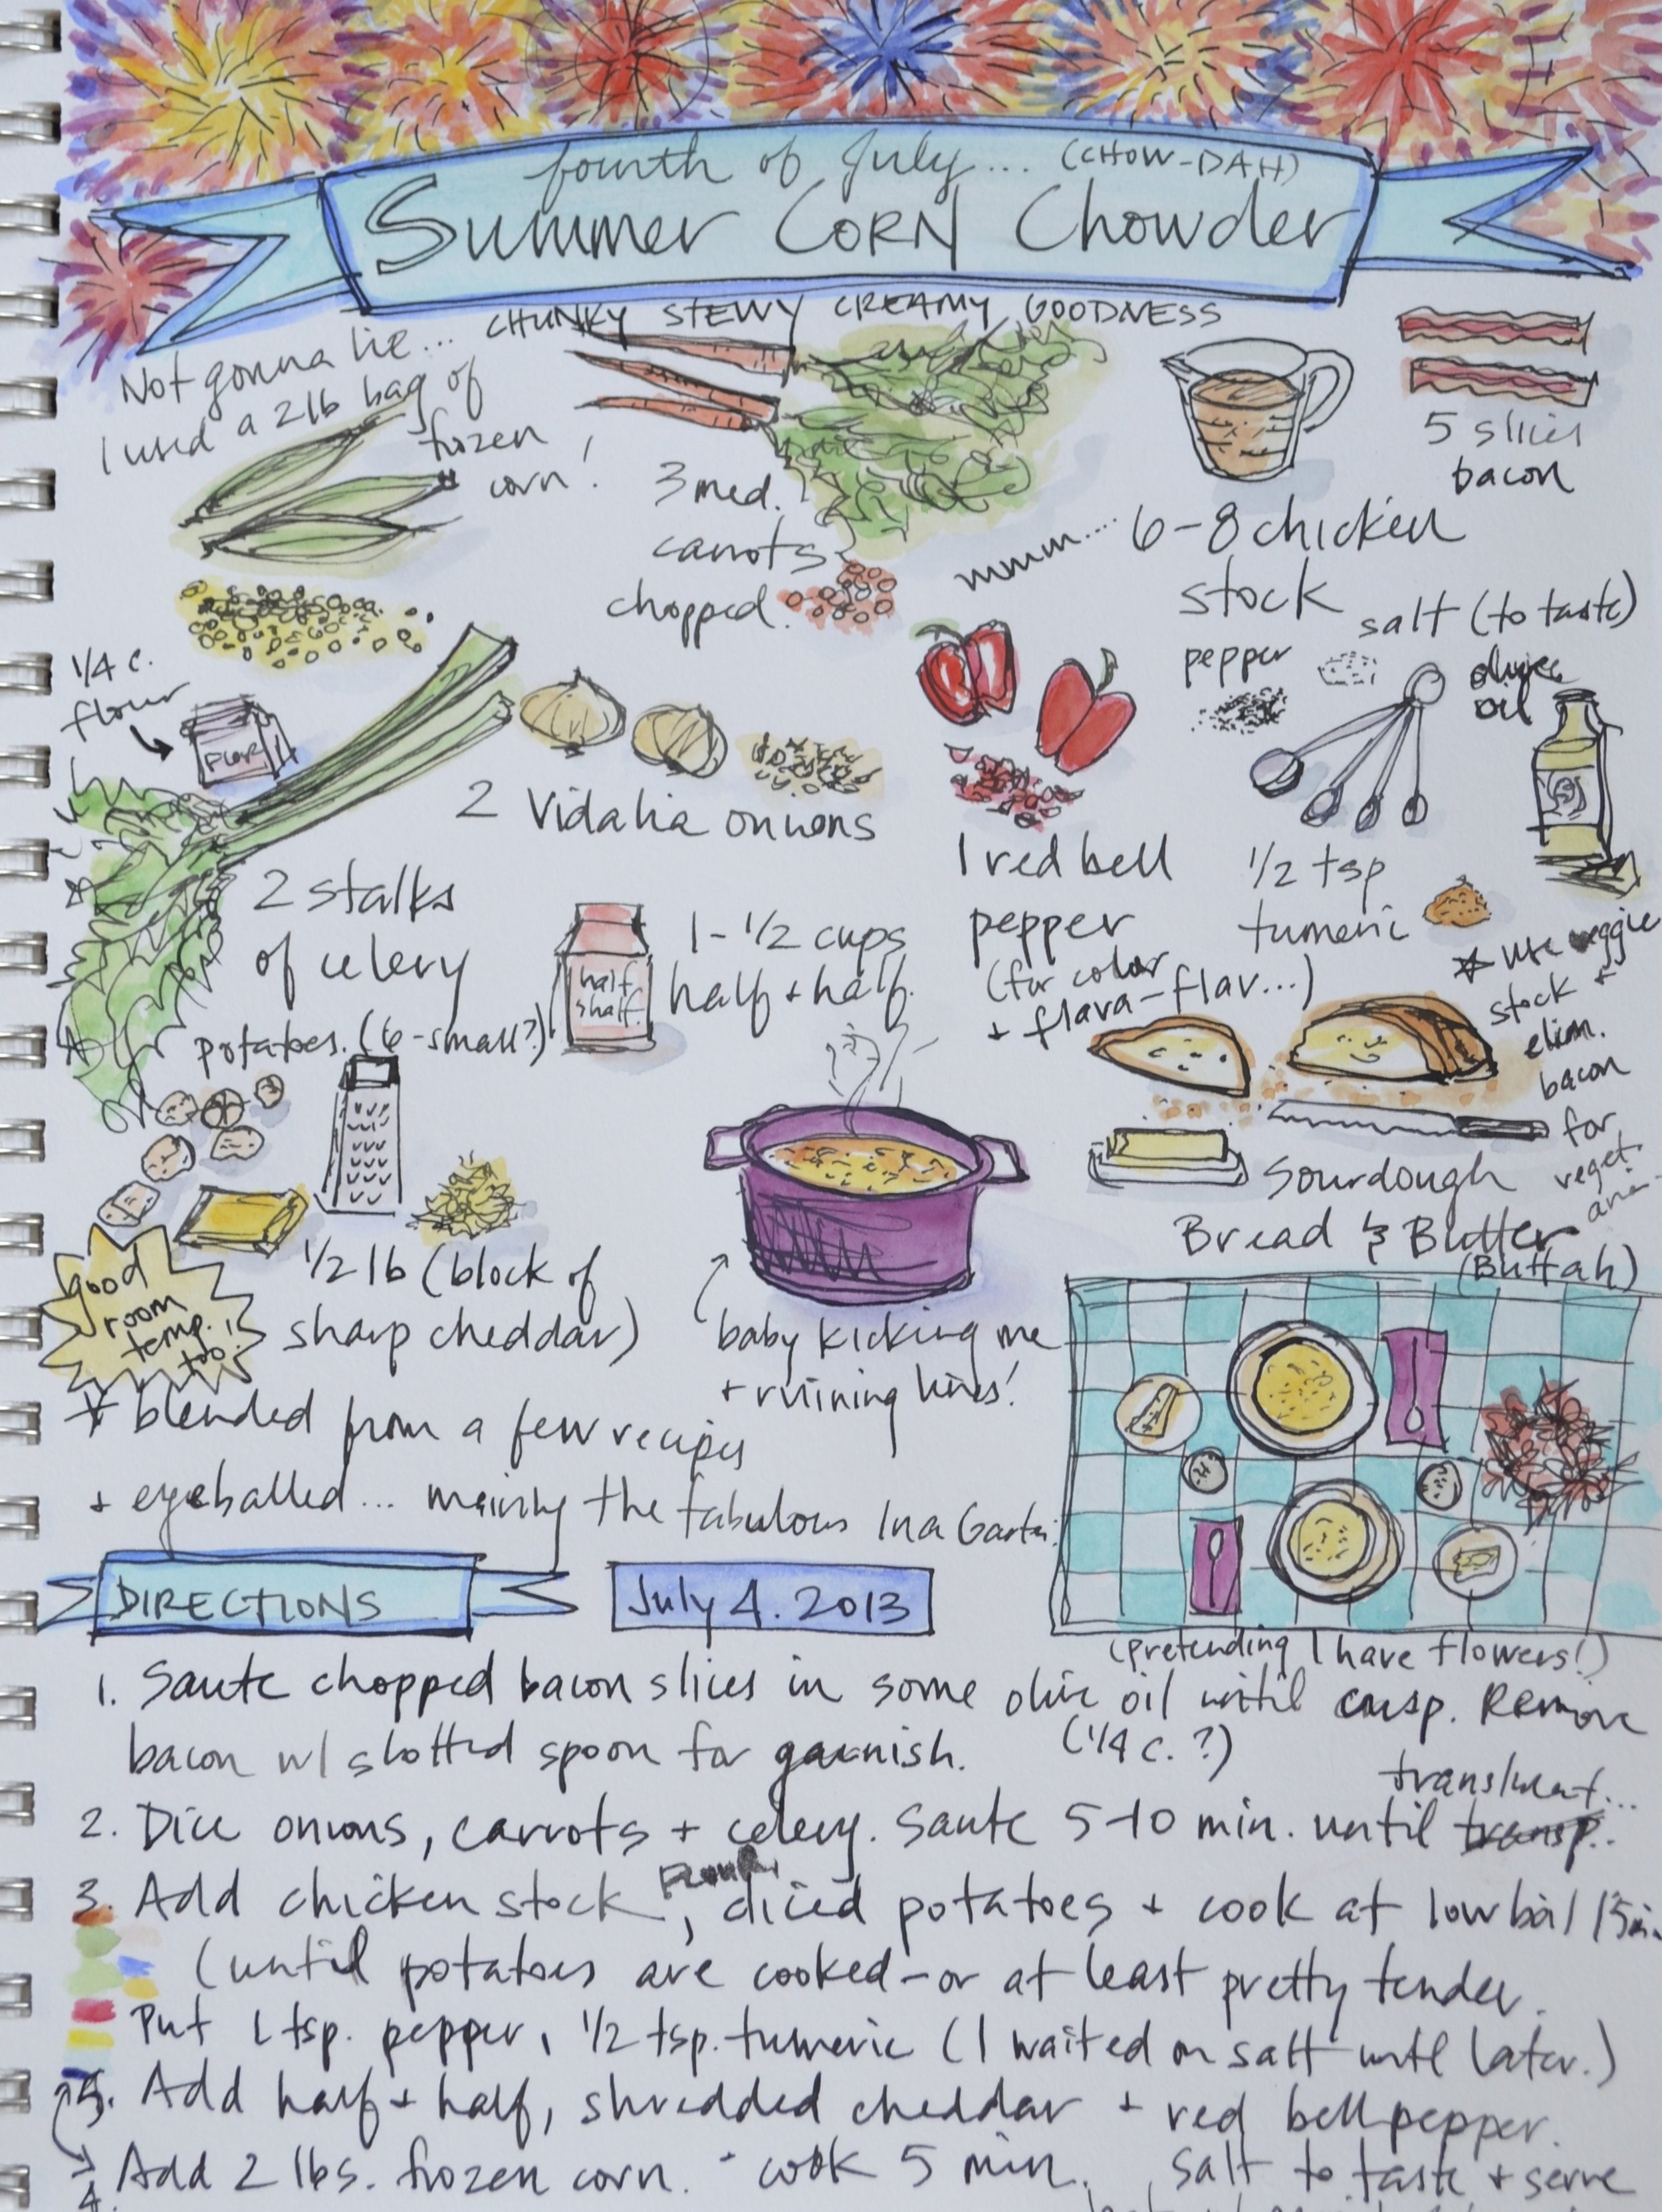 fourth of July... (CHOW-DAH)
Summer CORN Chowder
CHUNKY STEWY CREAMY GOODNESS
Not gonna lie...
I used a 2 lb bag of
frozen
corn!
3 med.
carrots
chopped.
mmm... 6-8 chicken
stock
5 slices
bacon
salt (to taste)
pepper
olive
oil
1/4 c.
flour
FLOUR
2 Vidalia onions
1 red bell
pepper
(for color
+ flava-flav...)
1/2 tsp
tumeric
2 stalks
of celery
half
half
1-1/2 cups
half + half.
* use veggie
stock +
elim.
bacon
for
veget.
potatoes. (6-small?)
Sourdough
Bread & Butter
(Buttah)
good
room
temp.
too!
1/2 lb (block of
sharp cheddar)
baby kicking me
+ ruining lines!
* blended from a few recipes
+ eyeballed... mainly the fabulous Ina Garten
(pretending I have flowers!)
DIRECTIONS
July 4. 2013
1. Saute chopped bacon slices in some olive oil until crisp. Remove
bacon w/ slotted spoon for garnish. (1/4 c. ?)
translucent...
2. Dice onions, carrots + celery. Saute 5-10 min. until transp..
FLOUR,
3. Add chicken stock, diced potatoes + cook at low boil 15 min.
(until potatoes are cooked - or at least pretty tender.
Put 1 tsp. pepper, 1/2 tsp. tumeric (I waited on salt until later.)
5. Add half + half, shredded cheddar + red bell pepper.
4. Add 2 lbs. frozen corn. cook 5 min. salt to taste + serve